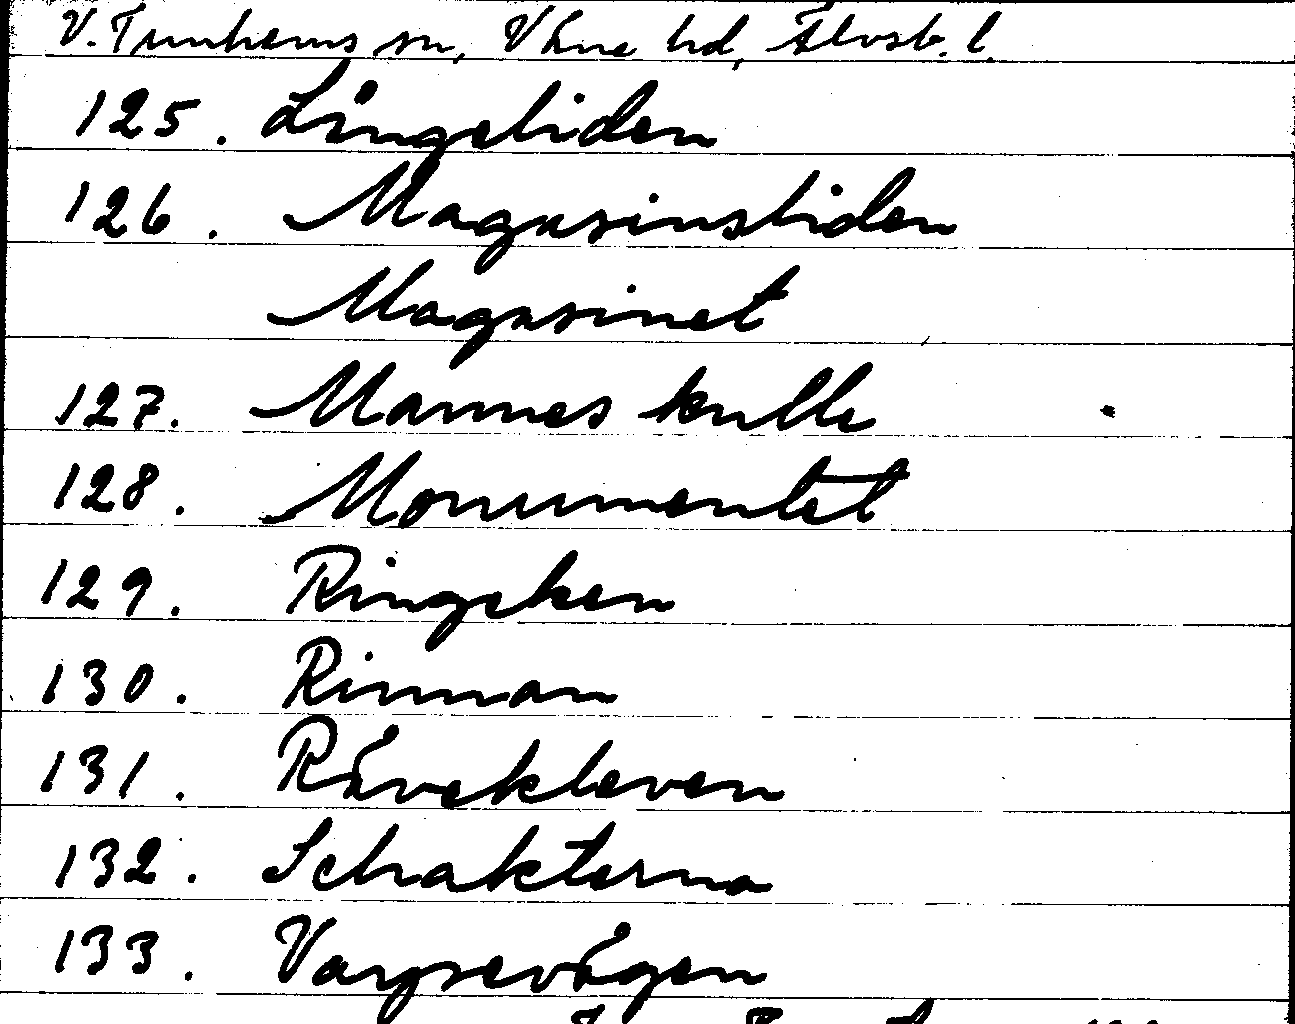 V. Tunhems sn, Väne hd, Älvsb. l.
125. Långeliden
126. Magasinsliden
Magasinet
127. Mannes kulle
128. Monumentet
129. Ringeken
130. Rinnan
131. Rävekleven
132. Schakterna
133. Vargsevägen